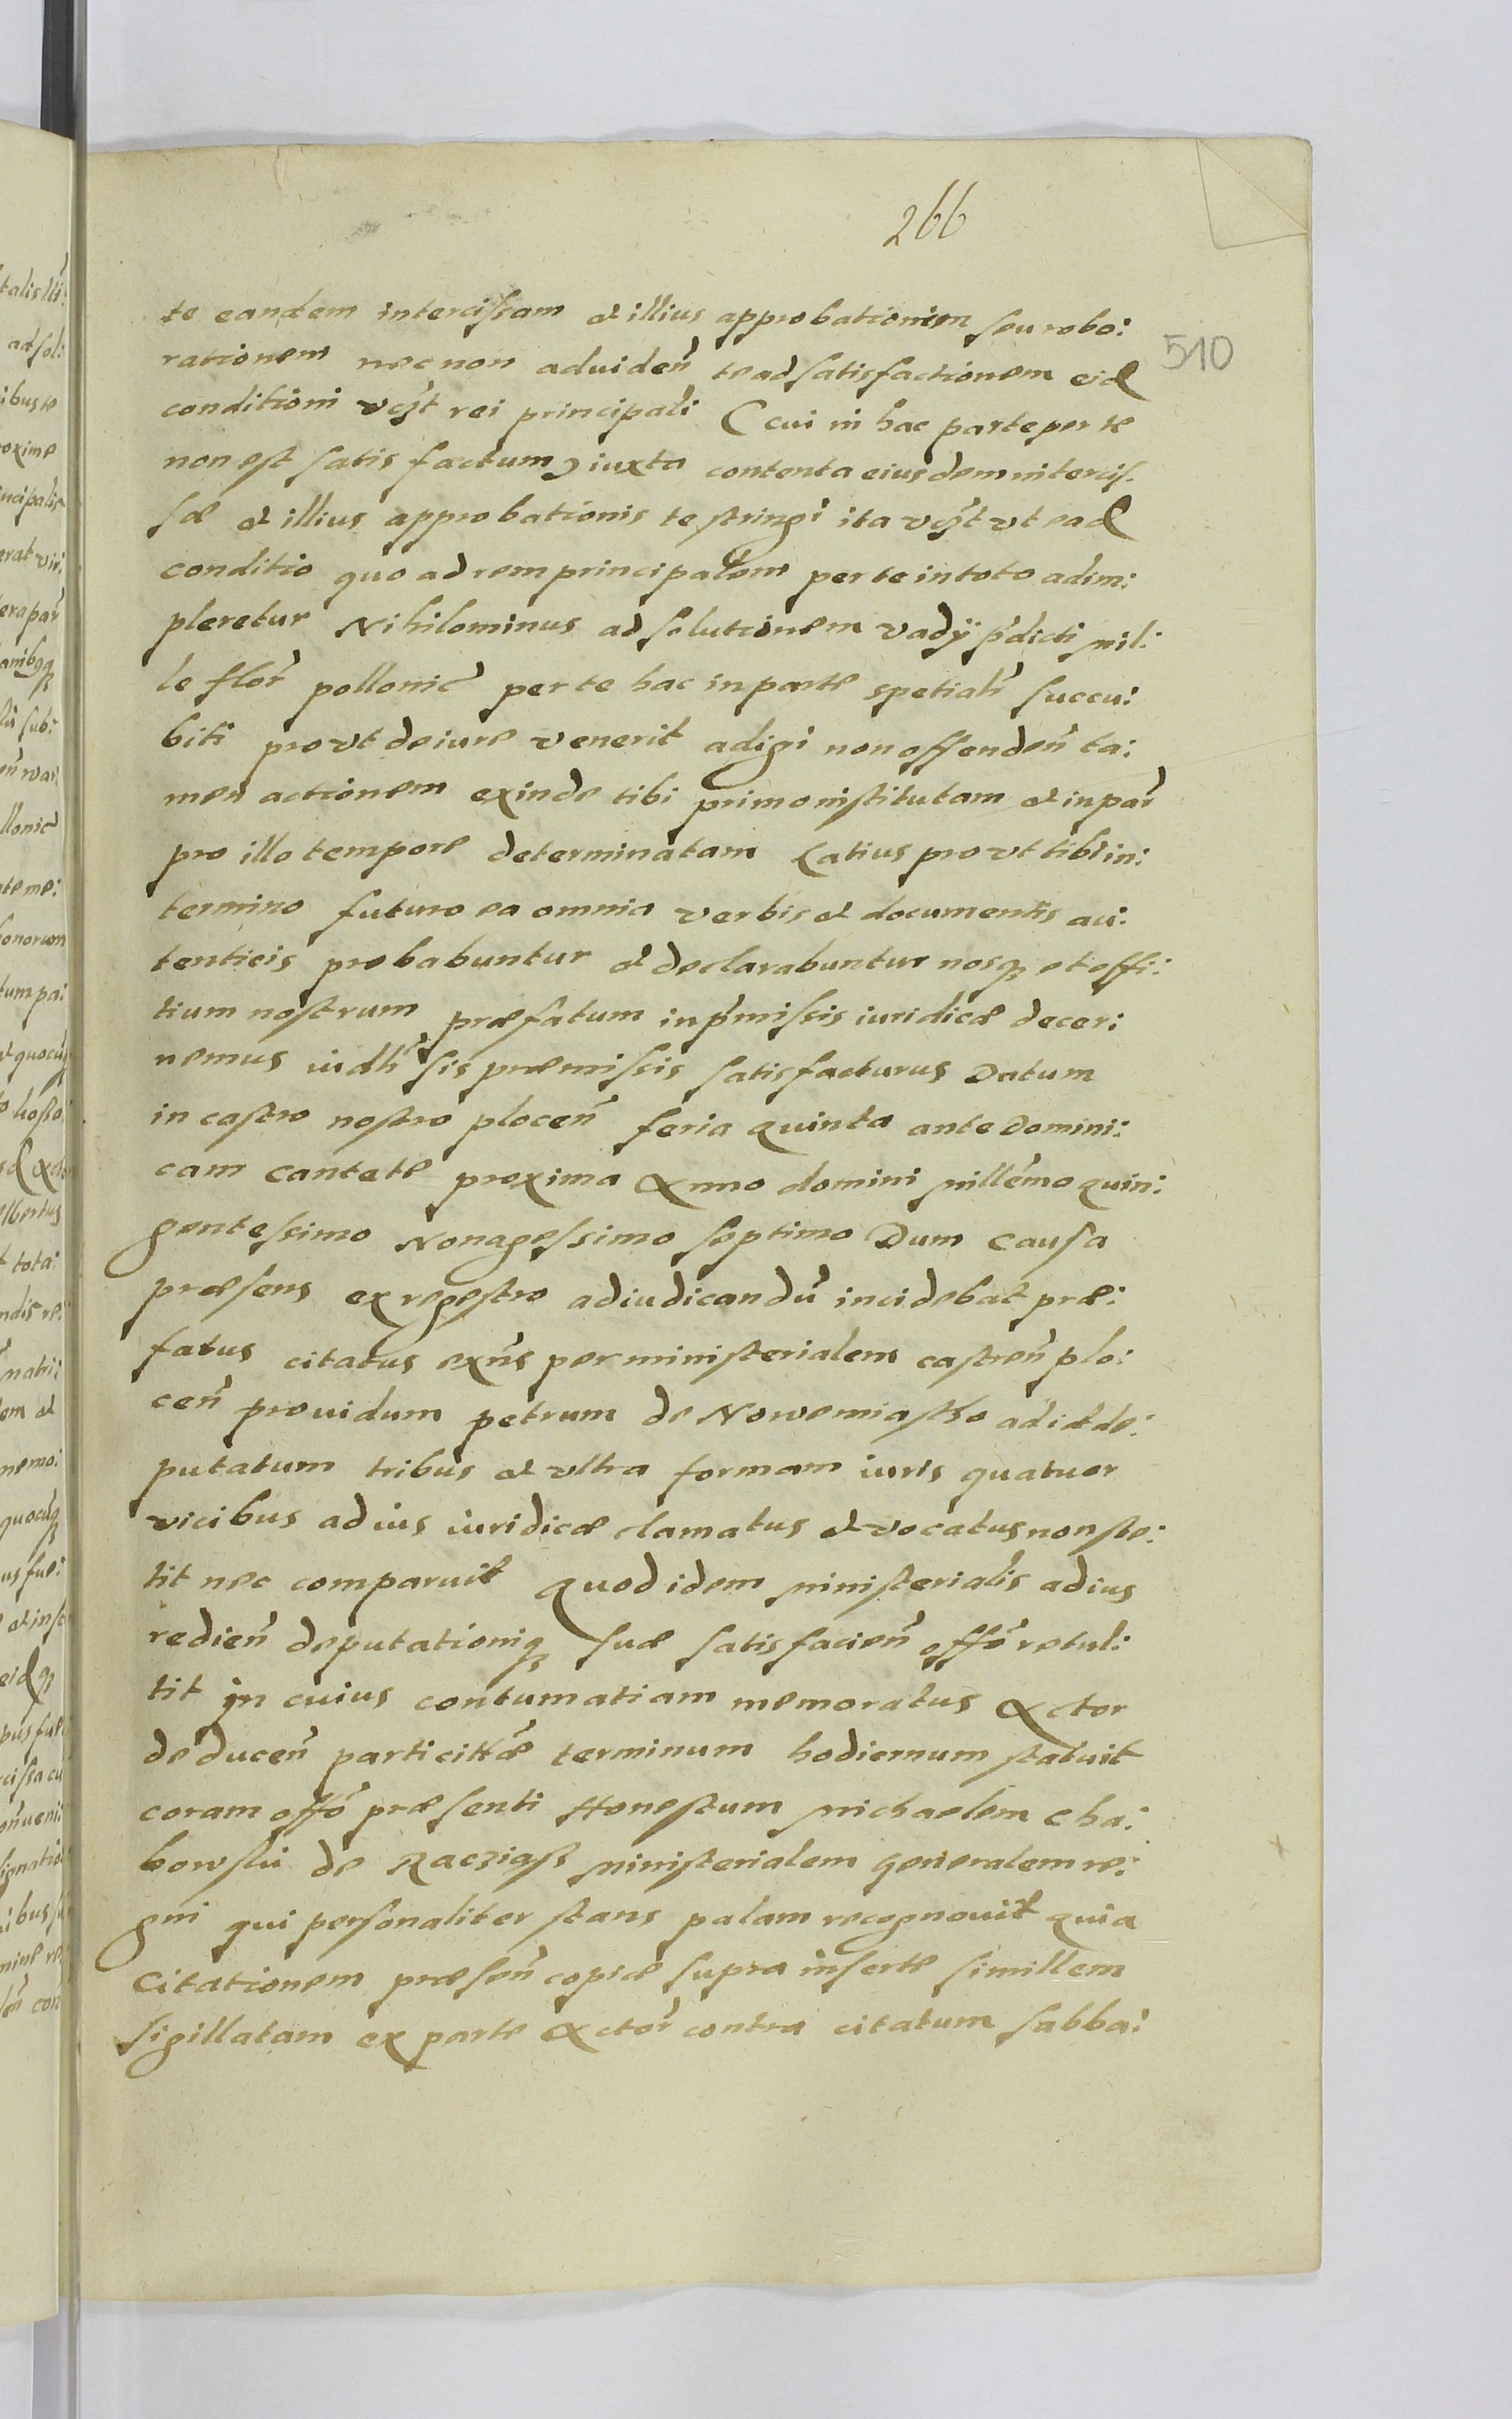 266
510
te eandem intercissam et illius approbationem seu robo:
rationem nec non aduiden̄ te ad satisfactionem eid
conditioni vcz̄t rei principali (cui in hac parte per te
non est satis factum) iuxta contenta eiusdem intercis-
sæ et illius approbationis te stringi ita vcz̄t vt ead
conditio quo ad rem principalem per te in toto adim:
pleretur Nihilominus ad solutionem vadÿ p̄dicti mil:
le flor̄ pollonic̄ per te hac in parte spetialr̄ succu:
biti pro vt de iure venerit adigi non offenden̄ ta:
men actionem exinde tibi primo institutam et in par̄
pro illo tempore determinatam Latius pro vt tibi in:
termino futuro ea omnia verbis et documentis au:
tenticis probabuntur et declarabuntur nosq3 et offi:
tium nostrum præfatum in p̄missis iuridicæ decer:
nemus iudlr̄ sis præmissis satisfacturus Datum
in castro nostro plocen̄ feria quinta ante Domini:
cam Cantate proxima Anno domini millēmo quin:
gentessimo Nonagessimo septimo Dum Causa
præsens ex regestro adiudicandū incidebat præ:
fatus citatus exn̄s per ministerialem castren̄ plo:
cen̄ prouidum petrum de Nowemiastko ad id de:
putatum tribus et vltra formam iuris quatuor
vicibus ad ius iuridicæ clamatus et vocatus non ste:
tit nec comparuit Quod idem ministerialis ad ius
redien̄ deputationiq3 suæ satisfacien̄ offo̅ retuli:
tit in cuius contumatiam memoratus Actor
deducen̄ terminum hodiernum statuit
coram offo̅ præsenti Honestum michaelem Cha:
bowski de Racziąsz ministerialem generalem re:
gni qui personaliter stans palam recognouit quia
Citationem præsen̄ copiæ supra insertæ simillem
sigillatam ex parte Actor̄ contra citatum sabba: